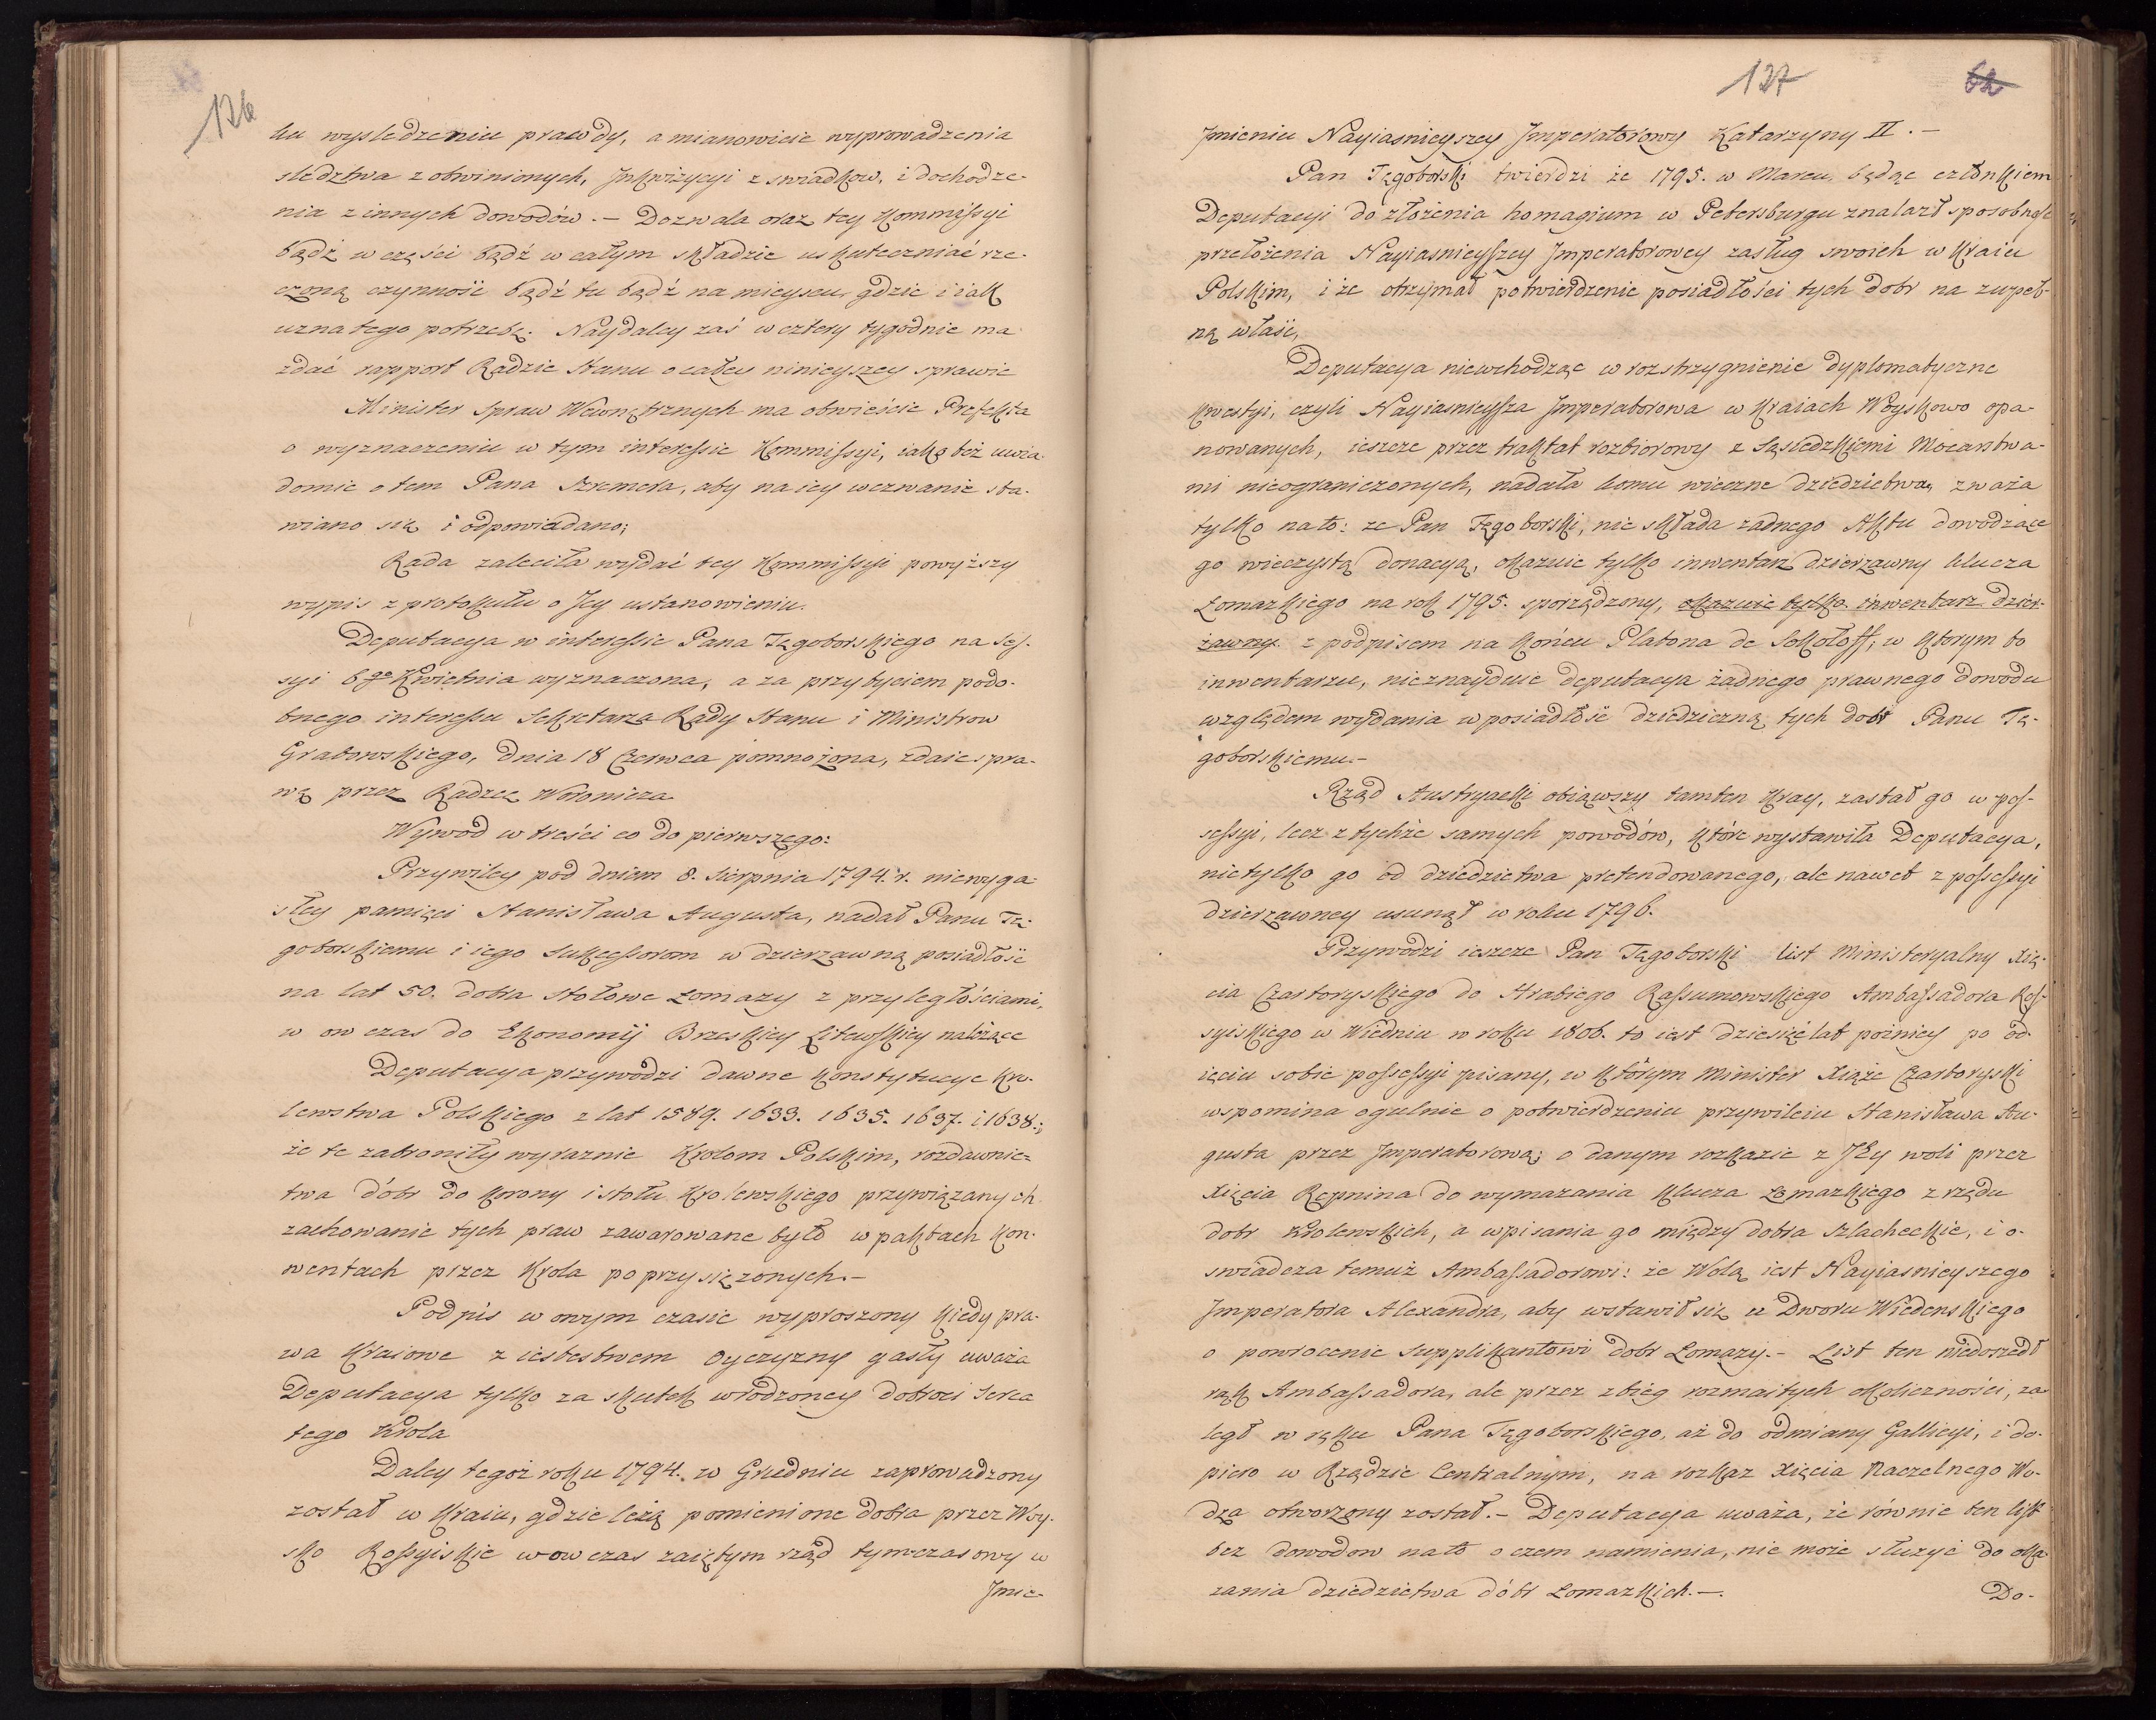 126
ku wysledzeniu prawdy, a mianowicie wyprowadzenia
sledztwa z obwinionych, Jnkwizycyi z swiadkow, i dochodze-
nia z innych dowodów. – Dozwala oraz tey Kommissyi
bądź w części bądź w całym składzie uskuteczniać rze-
czoną czynność bądź tu bądź na mieyscu gdzie i iak
uzna tego potrzebę. Naydaley zaś w cztery tygodnie ma
zdać rapport Radzie Stanu o całey ninieyszey sprawie
Minister Spraw Wewnętrznych ma obwieście Prefekta
o wyznaczeniu w tym interessie Kommissyi, iako też uwia-
domie o tem Pana Szremera, aby na iey wezwanie sta-
wiano się i odpowiadano;
Rada zaleciła wydać tey Kommissyi powyższy
wypis z protokułu o Jey ustanowieniu.
Deputacya w interessie Pana Tęgoborskiego na Ses-
syi 6go Kwietnia wyznaczona, a za przybyciem podo-
bnego interessu Sekretarza Rady Stanu i Ministrow
Grabowskiego, dnia 18 Czerwca pomnożona, zdaie spra-
wę przez Radzcę Woronicza
Wywod w treści co do pierwszego:
Przywiley pod dniem 8. Sierpnia 1794. r. niewyga-
słey pamięci Stanisława Augusta, nadał Panu Tę-
goborskiemu i iego Sukcessorom w dzierzawną posiadłość
na lat 50. dobra stołowe Łomazy z przyległościami,
w ow czas do Ekonomij Brzeskiey Litewskiey należące
Deputacya przywodzi dawne Konstytucye Kro-
lewstwa Polskiego z lat 1589. 1633. 1635. 1637. i 1638.;
że te zabroniły wyraznie Krolom Polskim, rozdawnic-
twa dóbr do Korony i stołu Krolewskiego przywiązanych
zachowanie tych praw zawarowane było w paktach Kon-
wentach przez Krola poprzysiężonych. –
Podpis w owym czasie wyproszony kiedy pra-
wa Kraiowe z iestestwem Oyczyzny gasły uważa
Deputacya tylko za skutek wrodzoney dobroci Serca
tego Krola
Daley tegoż roku 1794. w Grudniu zaprowadzony
został w Kraiu, gdzie leżą pomienione dobra przez Woy-
sko Rossyiskie wowczas zaiętym rząd tymczasowy w
Jmie-
127
62
Jmieniu Nayiasnieyszey Jmperatorowy Katarzyny II. –
Pan Tęgoborski twierdzi że 1795. w Marcu będąc członkiem
Deputacyi do złożenia homagium w Petersburgu znalazł sposobność
przełożenia Nayiasnieyszey Jmperatorowey zasług swoich w Kraiu
Polskim, i że otrzymał potwierdzenie posiadłości tych dobr na zupeł-
ną właść,
Deputacya niewchodząc w rozstrzygnienie dyplomatyczne
kwestyi, czyli Nayiasnieysza Jmperatorowa w Kraiach Woyskowo opa-
nowanych, ieszcze przez traktat rozbiorowy z Sąsiedzkiemi Mocarstwa-
mi nieograniczonych, nadała komu wieczne dziedzictwa, zważa
tylko na to: ze Pan Tęgoborski, nie składa zadnego Aktu dowodzące
go wieczystą donacyą, okazuie tylko inwentarz dzierzawny klucza
Łomazkiego na rok 1795. sporządzony, okazuie tylko inwentarz dzier-
żawny z podpisem na końcu Platona de Sokołoff, w ktorym to
inwentarzu, nieznayduie deputacya żadnego prawnego dowodu
względem wydania w posiadłość dziedziczną tych dobr Panu Tę-
goborskiemu. –
Rząd Austryacki obiąwszy tamten Kray, zastał go w pos-
sessyi, lecz z tychże samych powodów, które wystawiła Deputacya,
nietylko go od dziedzictwa pretendowanego, ale nawet z possessyi
dzierzawney usunął w roku 1796.
Przywodzi ieszcze Pan Tęgoborski list Ministeryalny Xię-
cia Czartoryskiego do Hrabiego Rassumowskiego Ambassadora Ros-
syiskiego w Wiedniu w roku 1806. to iest dziesięć lat poźniey po od-
ięciu sobie possessyi pisany, w którym Minister Xiąże Czartoryski
wspomina ogulnie o potwierdzeniu przywileiu Stanisława Au-
gusta przez Jmperatorową; o danym rozkazie z JEy woli przez
Xięcia Repnina do wymazania klucza Łomazkiego z rzędu
dobr Krolewskich, a wpisania go między dobra szlacheckie, i o-
swiadcza temuż Ambassadorowi: że Wolą iest Nayiasnieyszego
Jmperatora Alexandra, aby wstawił się u Dworu Wiedenskiego
o powrocenie Supplikantowi dobr Łomazy. – List ten niedoszedł
rąk Ambassadora, ale przez zbieg rozmaitych okoliczności, za-
legł w ręku Pana Tęgoborskiego, aż do odmiany Gallicyi, i do-
piero w Rządzie Centralnym, na rozkaz Xięcia Naczelnego Wo-
dza otworzony został. – Deputacya uważa, że równie ten list
bez dowodow na to o czem namienia, nie może służyć do oka-
zania dziedzictwa dóbr Łomazkich. –
Do-